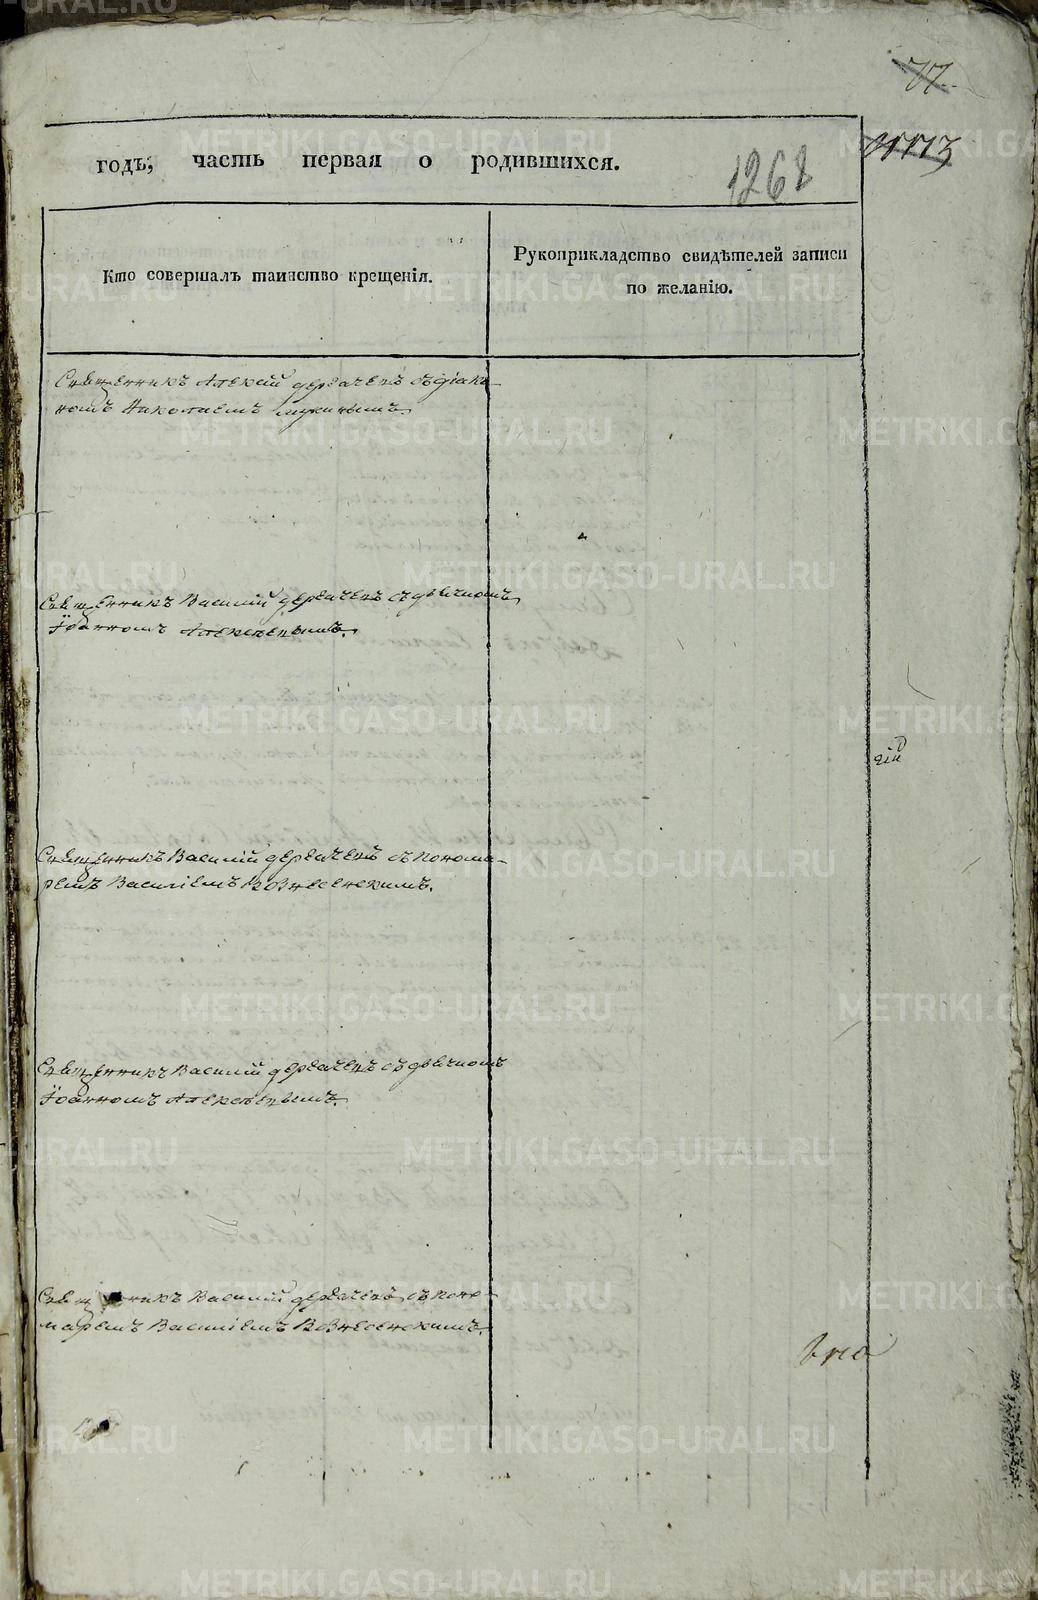 77
годъ, часть первая о родившихся.
1268
Кто совершалъ таинство крещенія.
Рукоприкладство свидѣтелей записи
по желанію.
Священникъ Алексій Дерябинъ съ діако-
номъ Николаемъ
Священникъ Василій Дерябинъ съ дьячкомъ
Іоанномъ Алексѣевымъ.
Священникъ Василій Дерябинъ съ понома-
ремъ Василіемъ Вознесенскимъ.
Священникъ Василій Дерябинъ съ дьячкомъ
Іоанномъ Алексѣевымъ.
Священникъ Василій Дерябинъ съ поно-
маремъ Василіемъ Вознесенскимъ.
METRIKI.GASO-URAL.RU